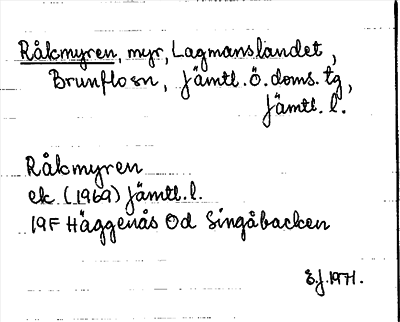 Råkmyren, myr, Lagmanslandet,
Brunflo sn, Jämtl. ö. doms. tg,
Jämtl. l.
Råkmyren
ek (1969) Jämtl. l.
19F Häggenås Od Singåbacken
E.J. 1971.